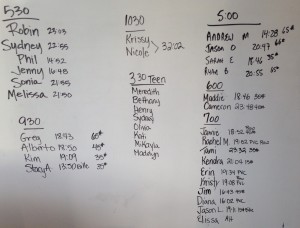 530
Robin 23:03
Sydney 22:55
Phil 14:52
Jenny 16:45
Sonia 21:55
Melissa 21:50
930
Greg 18:43 65#
Alberto 18:50 45#
Kim 19:09 35#
Stacy A. 35#
1030
Krissy
Nicole 32:02
3:30 Teen
Meredith
Bethany
Henry
Sydney
Olivia
Kati
Mikayla
Madelyn
5:00
ANDREW M 14:28 65#
JASON O 20:47 65#
SARAH E 18:46 35#
RYAN G 20:55 65#
600
Maddie 18:46 35#
Cameron 23:48
700
Jamie 18:52
Rachel M. 19:52 PVC
Tami 23:32 35#
Kendra 21:04
Erin 19:34 PVC
Kristy 19:08 PVC
Jim 16:43
Diana 16:02 PVC
Jason L.
Elissa